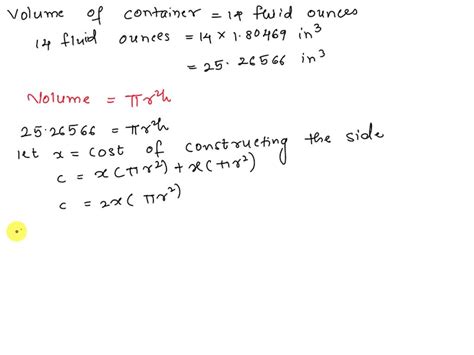 Volume of container = 14 fluid ounces
14 fluid ounces = 14 × 1.80469 in³
= 25.26566 in³
Volume = πr²h
25.26566 = πr²h
let x = cost of constructing the side
c = x(πr²) + x(πr²)
c = 2x(πr²)